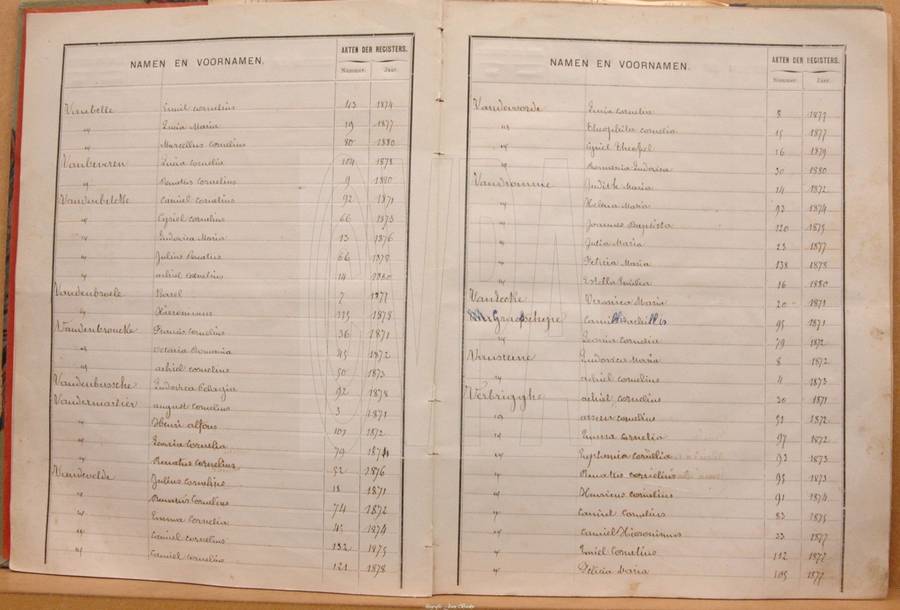 NAMEN EN VOORNAMEN.
AKTEN DER REGISTERS.
Nummer. Jaar.
Vanbelle Emiel Cornelius 43 1874
" Lucia Maria 19 1877
" Marcellus Cornelius 80 1880
Vanbeveren Lucia Cornelia 104 1878
" Renatus Cornelius 9 1880
Camiel Cornelius 92 1871
" Cyriel Cornelius 66 1873
" Ludovica Maria 13 1876
" Julius Renatus 66 1878
" achiel Cornelius 14 1880
Vandenbroele Karel 7 1871
" 115 1878
Vandenbroucke Francis Cornelius 36 1871
" Octavia Romania 45 1872
" achiel Cornelius 50 1873
Vandenbussche Ludovica Pelagia 92 1878
Vandermarlier august Cornelius 3 1871
" Henri alfons 107 1872
" Leonia Cornelia 79 1874
" Renatus Cornelius 52 1876
Vandevelde Julius Cornelius 18 1871
" Renatus Cornelius 74 1872
" Emma Cornelia 1874
" Camiel Cornelius 132 1875
" Camiel Cornelius 121 1878
NAMEN EN VOORNAMEN.
AKTEN DER REGISTERS.
Nummer. Jaar.
Vandevoorde Lucia Cornelia 8 1877
" Theophilus Cornelia 15 1877
" Cyriel Theofiel 16 1879
" Romania Ludovica 30 1880
Vandromme Judith Maria 14 1872
" Helena Maria 93 1874
" Joannes Baptista 120 1875
" Julia Maria 23 1877
" Leticia Maria 138 1878
" Estella 16 1880
Vanlooke Veronica Maria 20 1871
Camille achillis 95 1871
" Leonia Cornelia 79 1872
Ludovica Maria 8 1872
" achiel Cornelius 4 1873
Verbrigghe achiel Cornelius 30 1871
" arsene Cornelius 52 1872
" Emma Cornelia 97 1872
" Euphemia Cornelia 93 1873
" Renatus Cornelius 95 1873
" Henricus Cornelius 91 1874
" Camiel Cornelius 83 1875
" Camiel Hieronimus 33 1877
" Emiel Cornelius 112 1877
" Leticia Maria 105 1877